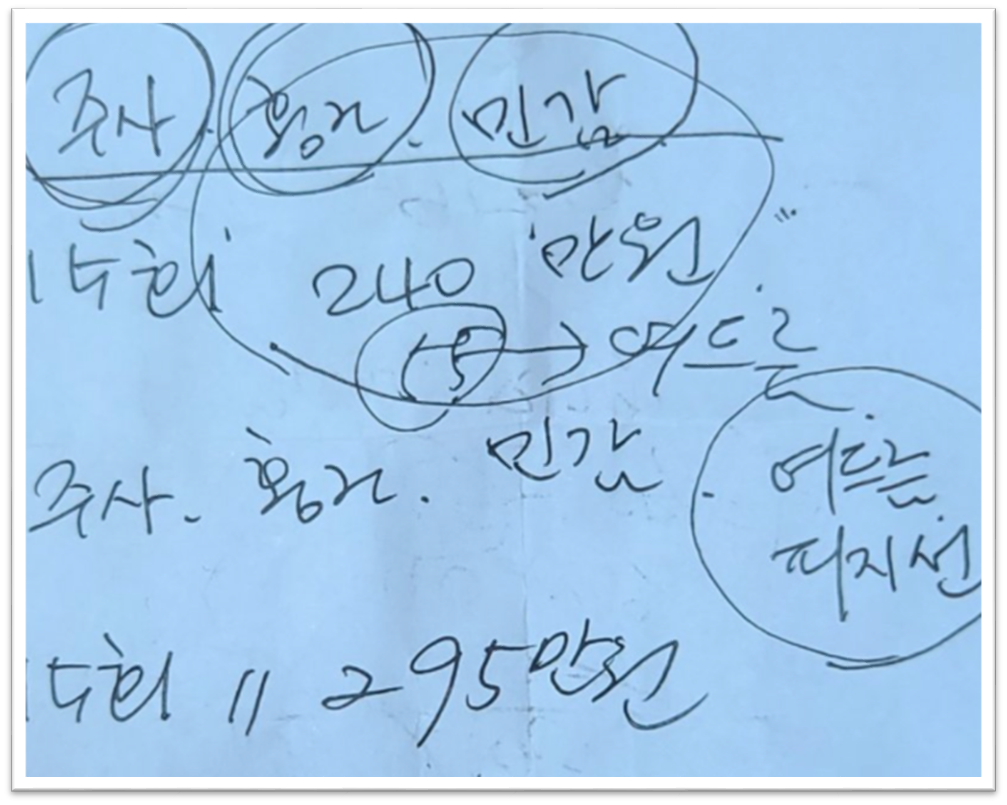 주사. 홍조. 민감
15회 240 만원
15 → 여드름
주사. 홍조. 민감
여드름
피지선
15회 〃 295만원